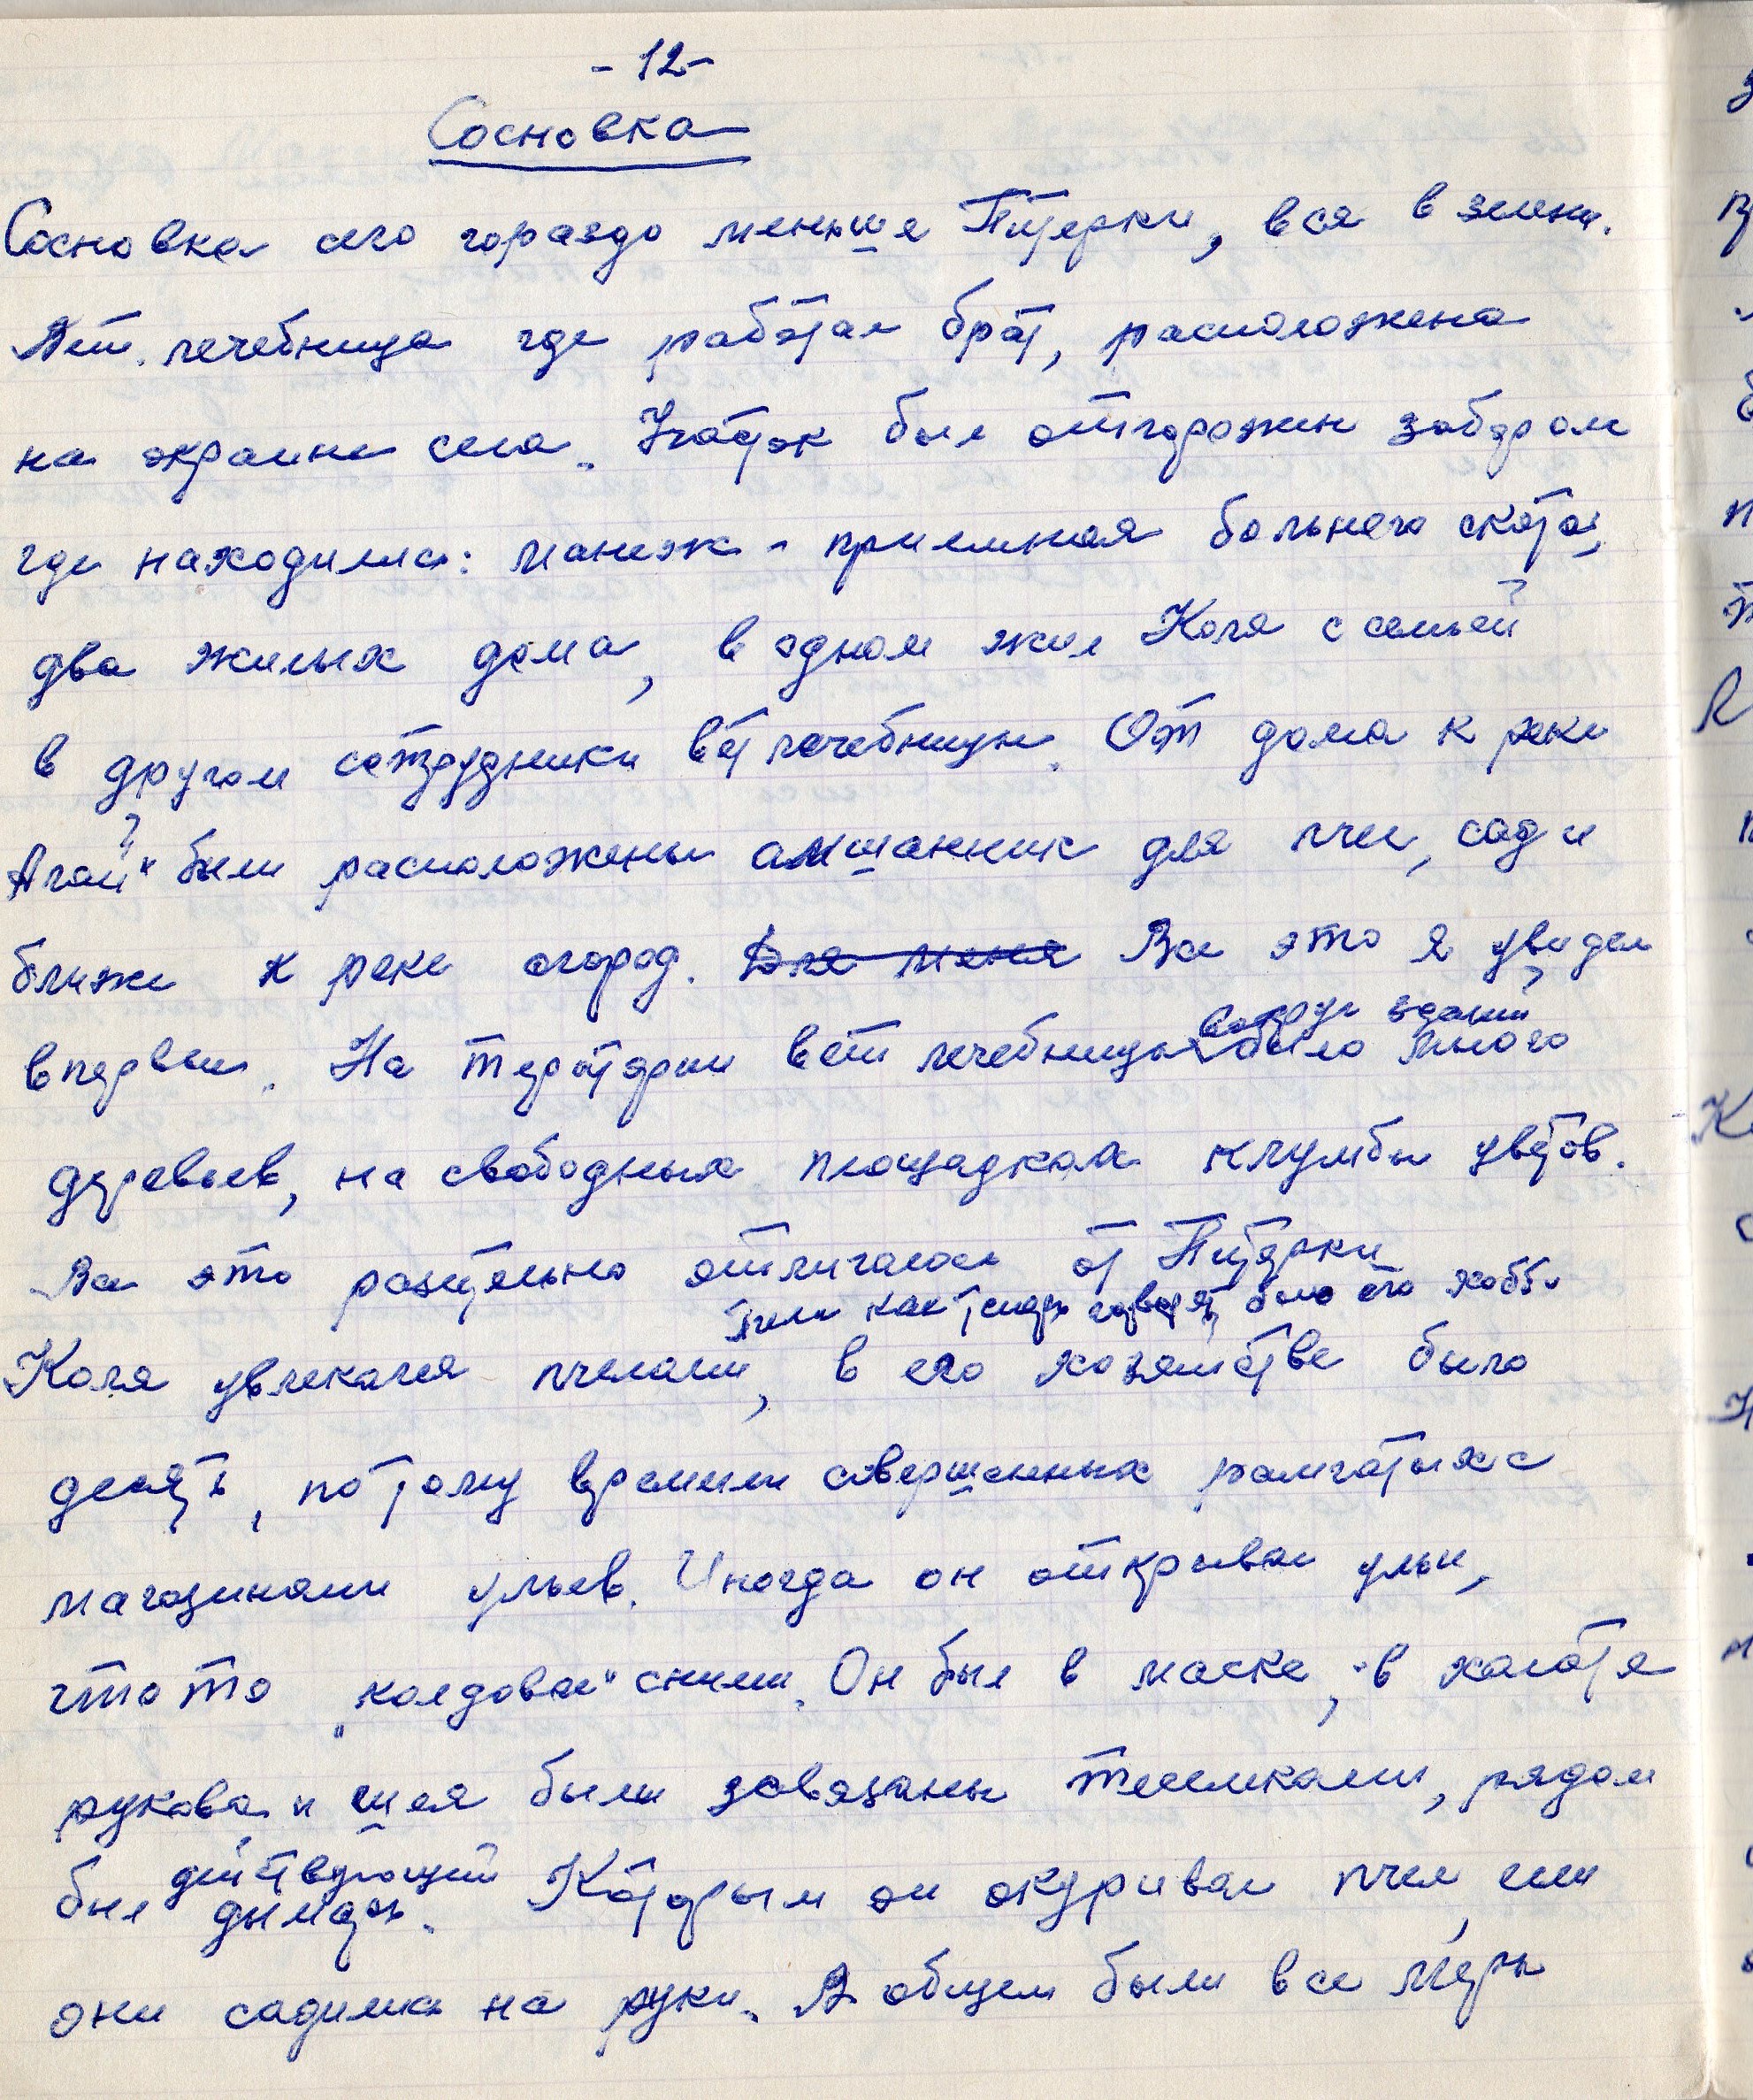 - 12 -
Сосновка
Сосновка село гораздо меньше Питерки, вся в зелени.
Вет. лечебница где работал брат, расположена
на окраине села. Участок был отгорожен забором
где находились: манеж - приемная больного скота,
два жилых дома, в одном жил Коля с семьей
в другом сотрудники вет лечебницы. От дома к реке
были расположены амшанник для пчел, сад и
ближе к реке огород. Для меня Все это я увидел
впервые. На териятории вет лечебницы вокруг зданий было много
деревьев, на свободных площадках клумбы цветов.
Все это разительно отличалось от Питерки
Пчелы как теперь говорят, было его хобби
Коля увлекался пчелами, в его хозяйстве было
десять, по тому времени совершенных рамчатых с
магазинами ульев. Иногда он открывал ульи,
что то „колдовал" с ними. Он был в маске, в халате
рукава и шея были завязаны тесемками, рядом
был действующий дымарь. Которым он окуривал пчел, если
они садились на руки. В общем были все меры